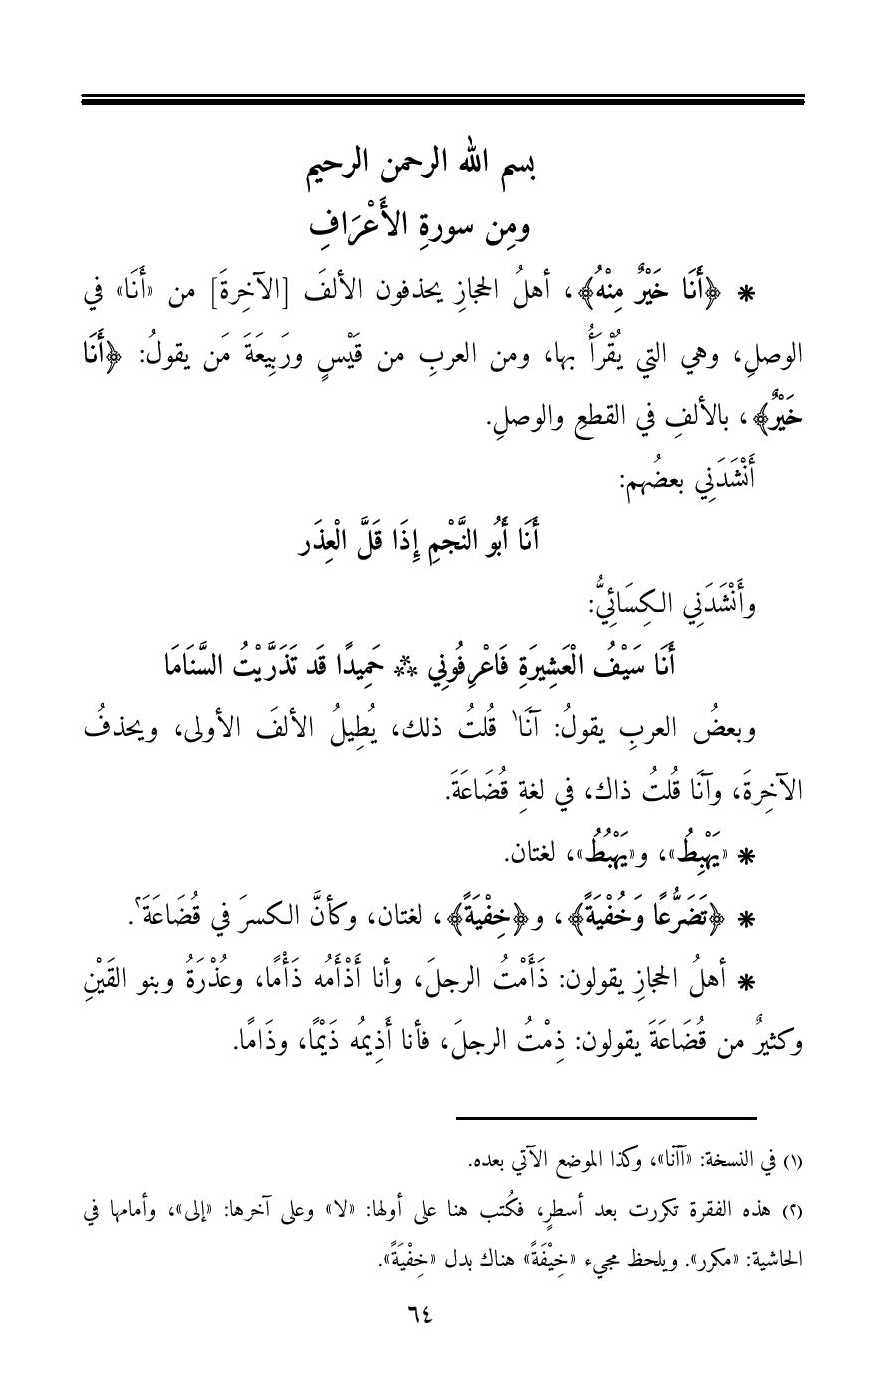 بسم الله الرحمن الرحيم
ومِن سورةِ الأَعْرَافِ
* ﴿أَنَا خَيْرٌ مِنْهُ﴾، أهلُ الحجازِ يحذفون الألفَ [الآخِرةَ] من «أَنَا» في
الوصلِ، وهي التي يُقْرَأُ بها، ومن العربِ من قَيْسٍ ورَبِيعَةَ مَن يقولُ: ﴿أَنَا
خَيْرٌ﴾، بالألفِ في القطعِ والوصلِ.
أَنْشَدَنِي بعضُهم:
أَنَا أَبُو النَّجْمِ إِذَا قَلَّ الْعِذَر
وأَنْشَدَنِي الكِسَائِيُّ:
أَنَا سَيْفُ الْعَشِيرَةِ فَاعْرِفُونِي ** حَمِيدًا قَد تَذَرَّيْتُ السَّنَامَا
وبعضُ العربِ يقولُ: آنَا١ قُلتُ ذلك، يُطِيلُ الألفَ الأولى، ويحذفُ
الآخِرةَ، وآنَا قُلتُ ذاك، في لغةِ قُضَاعَةَ.
* «يَهْبِطُ»، و«يَهْبُطُ»، لغتان.
* ﴿تَضَرُّعًا وَخُفْيَةً﴾، و﴿خِفْيَةً﴾، لغتان، وكأنَّ الكسرَ في قُضَاعَةَ٢.
* أهلُ الحجازِ يقولون: ذَأَمْتُ الرجلَ، وأنا أَذْأَمُه ذَأْمًا، وعُذْرَةُ وبنو القَيْنِ
وكثيرٌ من قُضَاعَةَ يقولون: ذِمْتُ الرجلَ، فأنا أَذِيمُه ذَيْمًا، وذَامًا.
(١) في النسخة: «اَآنا»، وكذا الموضع الآتي بعده.
(٢) هذه الفقرة تكررت بعد أسطرٍ، فكُتب هنا على أولها: «لا» وعلى آخرها: «إلى»، وأمامها في
الحاشية: «مكرر». ويلحظ مجيء «خِيْفَةً» هناك بدل «خِفْيَةً».
٦٤